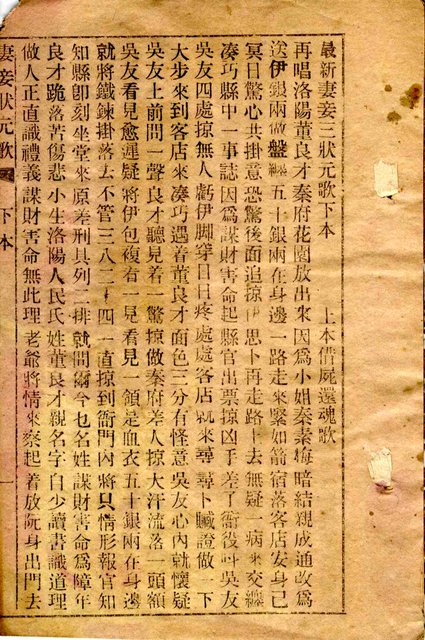 最新妻妾三狀元歌下本　上本借屍還魂歌
再唱洛陽董良才秦府花園放出來因爲小姐秦素梅暗結親成通改爲
送伊銀兩做盤纏五十銀兩在身邊一路走來緊如箭宿落客店安身已
冥日驚心共掛意恐驚後面追掠伊思卜再走路上去無疑一病來交纏
湊巧縣中一事誌因爲謀財害命起縣官出票掠凶手差了衙役呌吳友
吳友四處掠無人虧伊脚穿目日疼處處客店就來尋尋卜贓證做一下
大步來到客店來湊巧遇着董良才面色三分有怪意吳友心內就懷疑
吳友上前問一聲良才聽見着一驚掠做秦府差人掠大汗流落一頭額
吳友看見愈遲疑將伊包複看一見看見一領是血衣五十銀兩在身邊
就將鐵鍊掛落去不管三八二十四一直掠到衙門內將只情形報官知
知縣卽刻坐堂來原差刑具列二排就問爾今乜名姓謀財害命爲障年
良才跪落苦傷悲小生洛陽人民氏姓董良才親名字自少讀書識道理
做人正直識禮義謀財害命無此理老爺將情來察起着放阮身出門去
妻妾狀元歌　下本　一